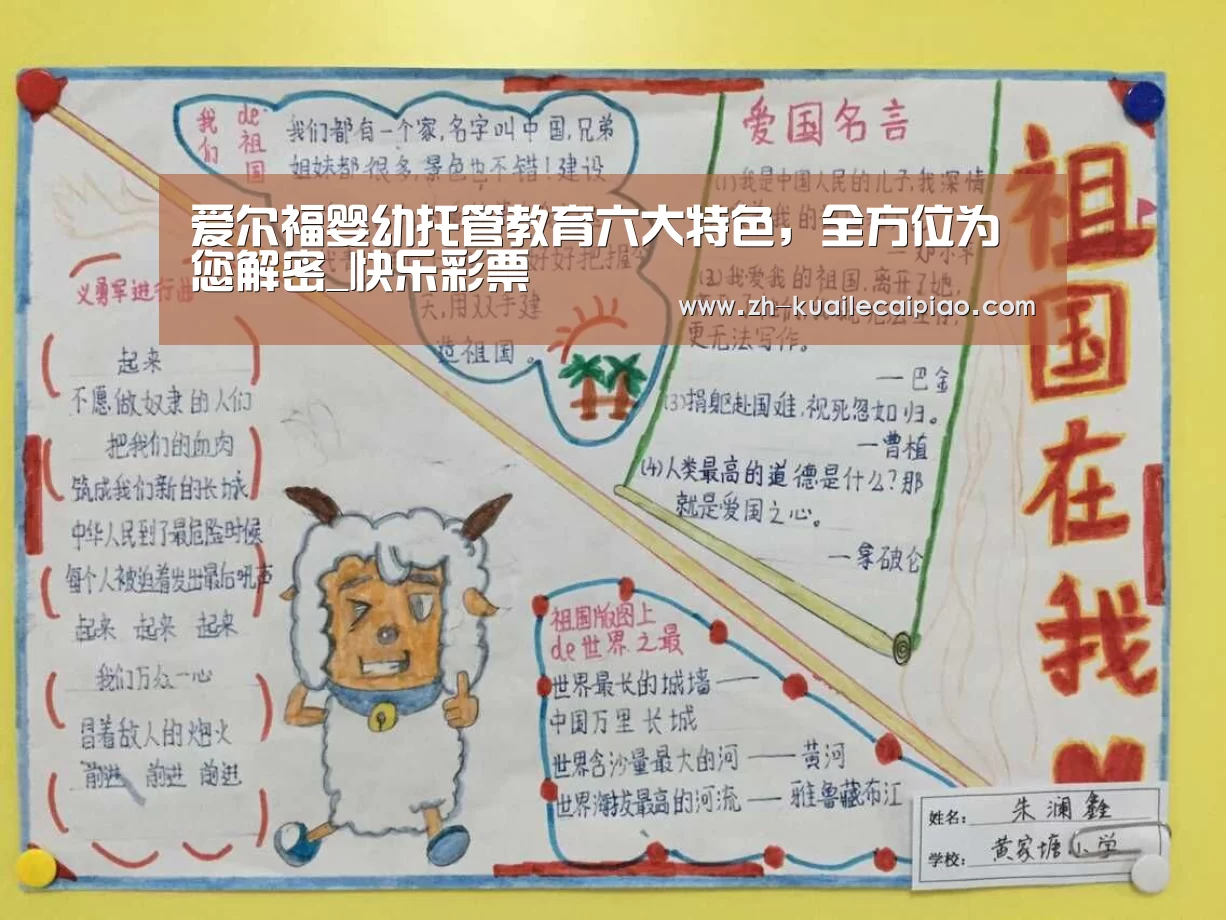 我们
de
祖国
我们都有一个家,名字叫中国,兄弟
姐妹都很多,景色也不错!建设
好好把握
天,用双手建
造祖国。
爱尔福婴幼托管教育六大特色,全方位为
您解密_快乐彩票
www.zh-kuailecaipiao.com
义勇军进行曲
起来
不愿做奴隶的人们
把我们的血肉
筑成我们新的长城
中华人民到了最危险时候
每个人被迫着发出最后吼声
起来 起来 起来
我们万众一心
冒着敌人的炮火
前进 前进 前进
爱国名言
(1)我是中国人民的儿子,我深情
(2)我爱我的祖国,离开了她,
更无法写作。
—巴金
(3)捐躯赴国难,视死忽如归。
—曹植
(4)人类最高的道德是什么?那
就是爱国之心。
—拿破仑
祖国版图上
de世界之最
世界最长的城墙——
中国万里长城
世界含沙量最大的河——黄河
世界海拔最高的河流——雅鲁藏布江
祖国在我
姓名: 朱澜鑫
学校: 黄家塘小学